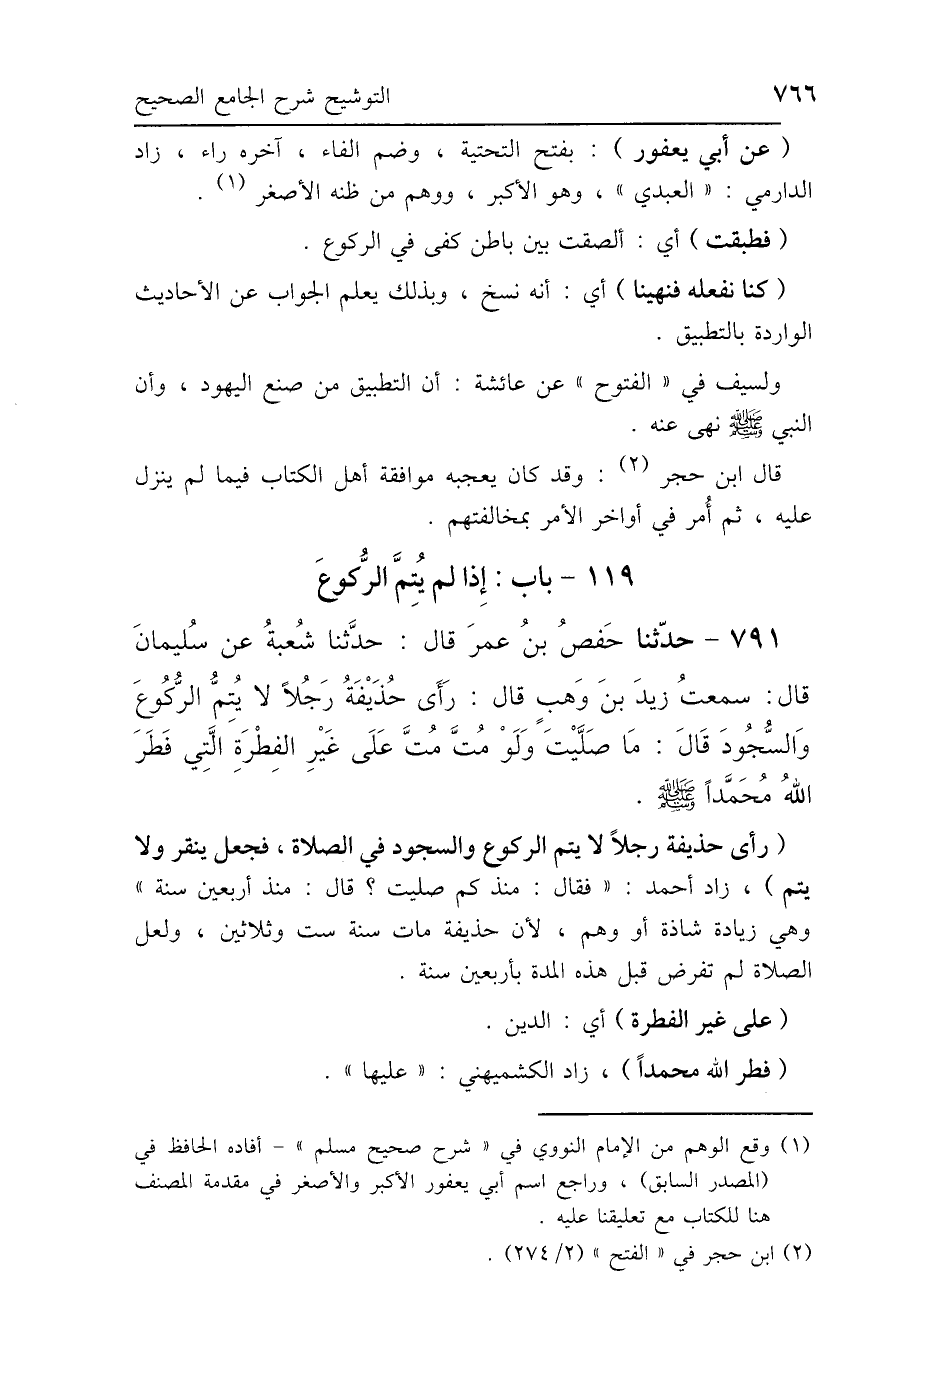 ٧٦٦ التوشيح شرح الجامع الصحيح
( عن أبي يعفور ) : بفتح التحتية ، وضم الفاء ، آخره راء ، زاد
الدارمي : « العبدي » ، وهو الأكبر ، ووهم من ظنه الأصغر (١) .
( فطبقت ) أي : ألصقت بين باطن كفى في الركوع .
( كنا نفعله فنهينا ) أي : أنه نسخ ، وبذلك يعلم الجواب عن الأحاديث
الواردة بالتطبيق .
ولسيف في « الفتوح » عن عائشة : أن التطبيق من صنع اليهود ، وأن
النبي ﷺ نهى عنه .
قال ابن حجر (٢) : وقد كان يعجبه موافقة أهل الكتاب فيما لم ينزل
عليه ، ثم أُمر في أواخر الأمر بمخالفتهم .
١١٩ - باب : إِذا لم يُتِمَّ الرُّكوعَ
٧٩١ - حدّثنا حَفصُ بنُ عمرَ قال : حدَّثنا شُعبةُ عن سُليمانَ
قال: سمعتُ زيدَ بنَ وَهبٍ قال : رَأَى حُذَيْفَةُ رَجُلاً لا يُتِمُّ الرُّكُوعَ
وَالسُّجُودَ قَالَ : مَا صَلَّيْتَ وَلَوْ مُتَّ مُتَّ عَلَى غَيْرِ الفِطْرَةِ الَّتِي فَطَرَ
اللهُ مُحَمَّداً ﷺ .
( رأى حذيفة رجلاً لا يتم الركوع والسجود في الصلاة ، فجعل ينقر ولا
يتم ) ، زاد أحمد : « فقال : منذ كم صليت ؟ قال : منذ أربعين سنة »
وهي زيادة شاذة أو وهم ، لأن حذيفة مات سنة ست وثلاثين ، ولعل
الصلاة لم تفرض قبل هذه المدة بأربعين سنة .
( على غير الفطرة ) أي : الدين .
( فطر الله محمداً ) ، زاد الكشميهني : « عليها » .
(١) وقع الوهم من الإمام النووي في « شرح صحيح مسلم » - أفاده الحافظ في
(المصدر السابق) ، وراجع اسم أبي يعفور الأكبر والأصغر في مقدمة المصنف
هنا للكتاب مع تعليقنا عليه .
(٢) ابن حجر في « الفتح » (٢/ ٢٧٤) .